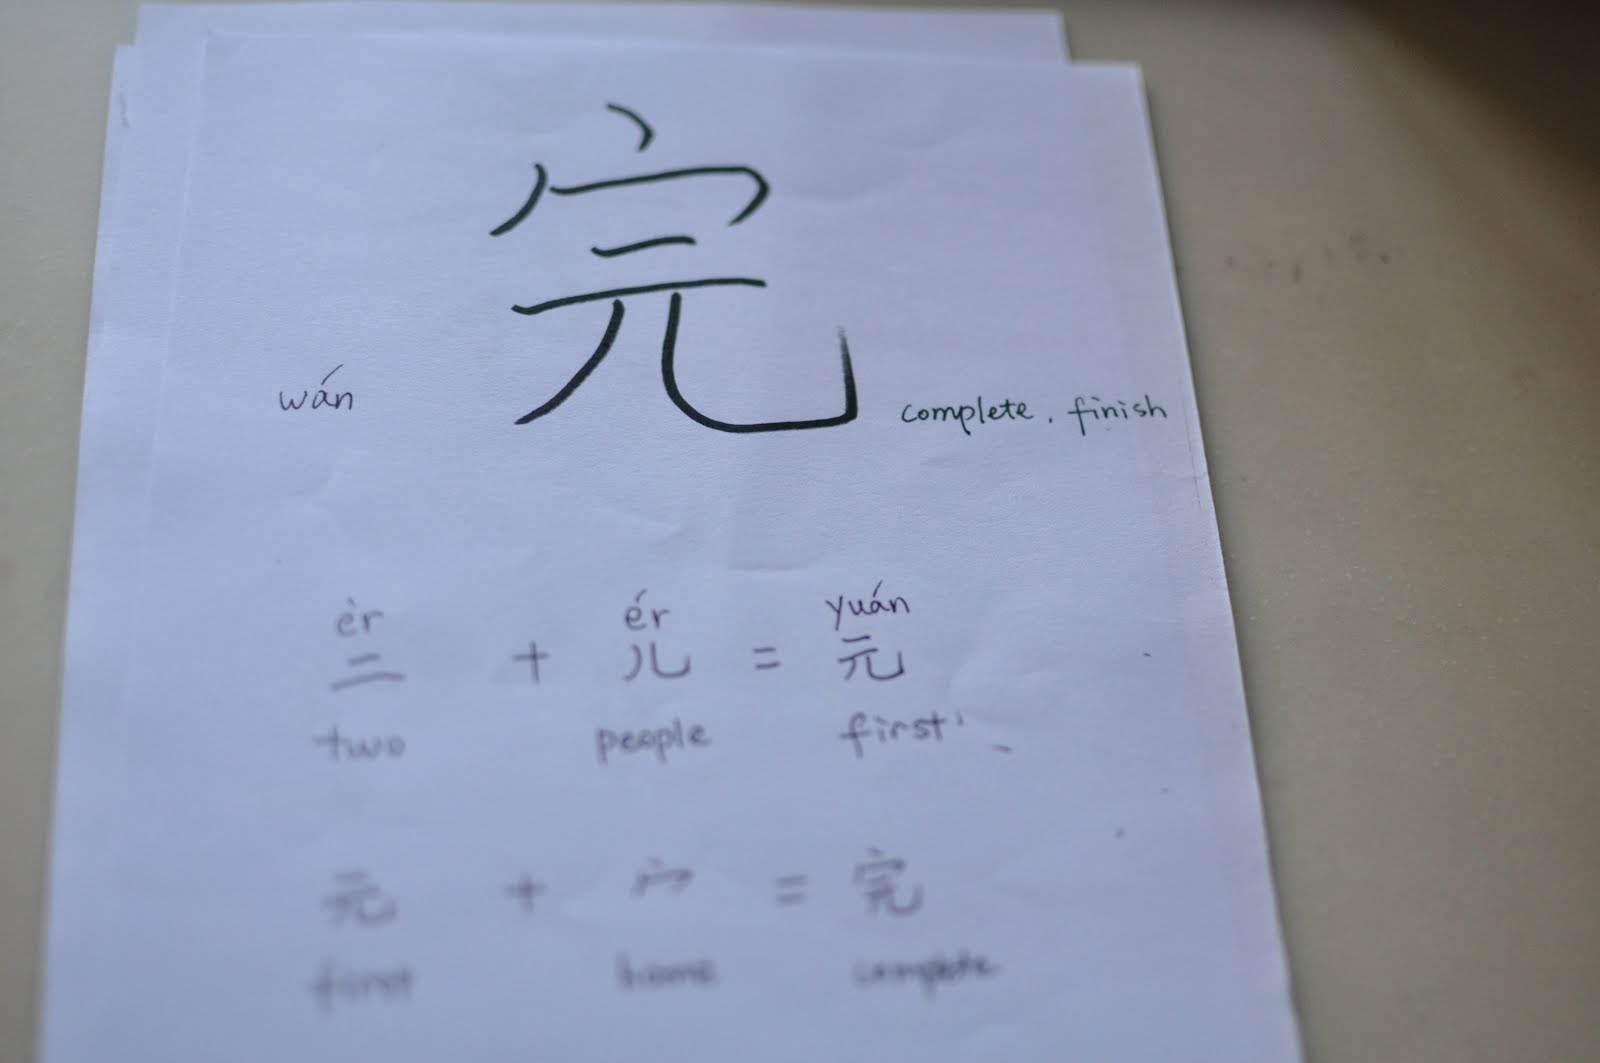 完
wán
complete, finish
èr ér yuán
二 + 儿 = 元
two people first
元 + 宀 = 完
first home complete